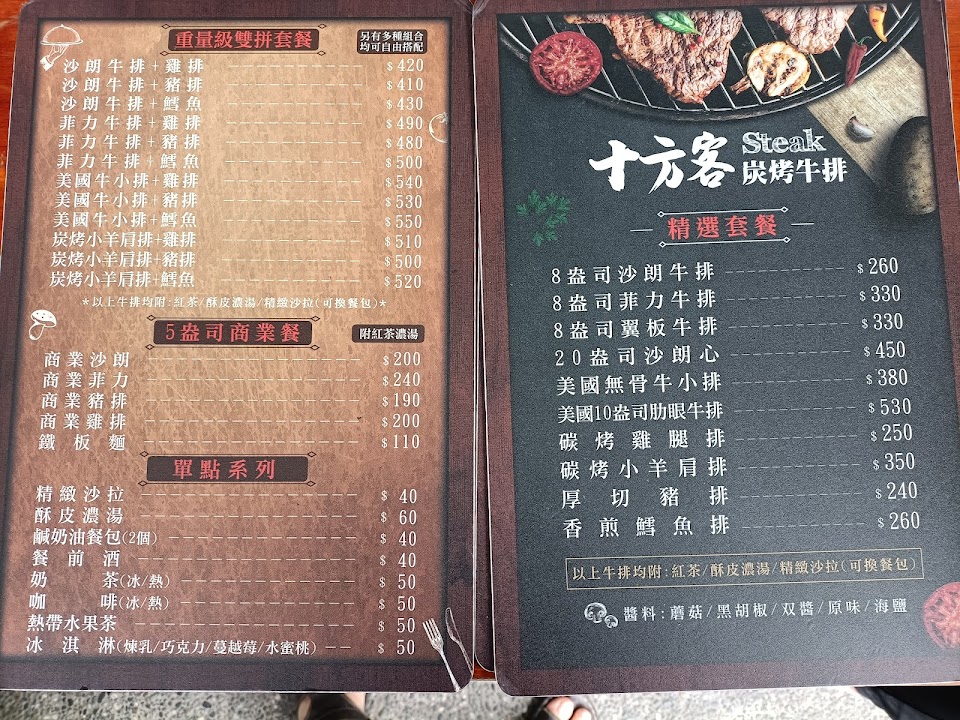 重量級雙拼套餐
另有多種組合
均可自由搭配
沙朗牛排+雞排 $420
沙朗牛排+豬排 $410
沙朗牛排+鱈魚 $430
菲力牛排+雞排 $490
菲力牛排+豬排 $480
菲力牛排+鱈魚 $500
美國牛小排+雞排 $540
美國牛小排+豬排 $530
美國牛小排+鱈魚 $550
炭烤小羊肩排+雞排 $510
炭烤小羊肩排+豬排 $500
炭烤小羊肩排+鱈魚 $520
*以上牛排均附:紅茶/酥皮濃湯/精緻沙拉(可換餐包)*
5盎司商業餐
附紅茶濃湯
商業沙朗 $200
商業菲力 $240
商業豬排 $190
商業雞排 $200
鐵板麵 $110
單點系列
精緻沙拉 $40
酥皮濃湯 $60
鹹奶油餐包(2個) $40
餐前酒 $40
奶茶(冰/熱) $50
咖啡(冰/熱) $50
熱帶水果茶 $50
冰淇淋(煉乳/巧克力/蔓越莓/水蜜桃) $50
十方客 Steak
炭烤牛排
精選套餐
8盎司沙朗牛排 $260
8盎司菲力牛排 $330
8盎司翼板牛排 $330
20盎司沙朗心 $450
美國無骨牛小排 $380
美國10盎司肋眼牛排 $530
碳烤雞腿排 $250
碳烤小羊肩排 $350
厚切豬排 $240
香煎鱈魚排 $260
以上牛排均附:紅茶/酥皮濃湯/精緻沙拉(可換餐包)
醬料:蘑菇/黑胡椒/双醬/原味/海鹽